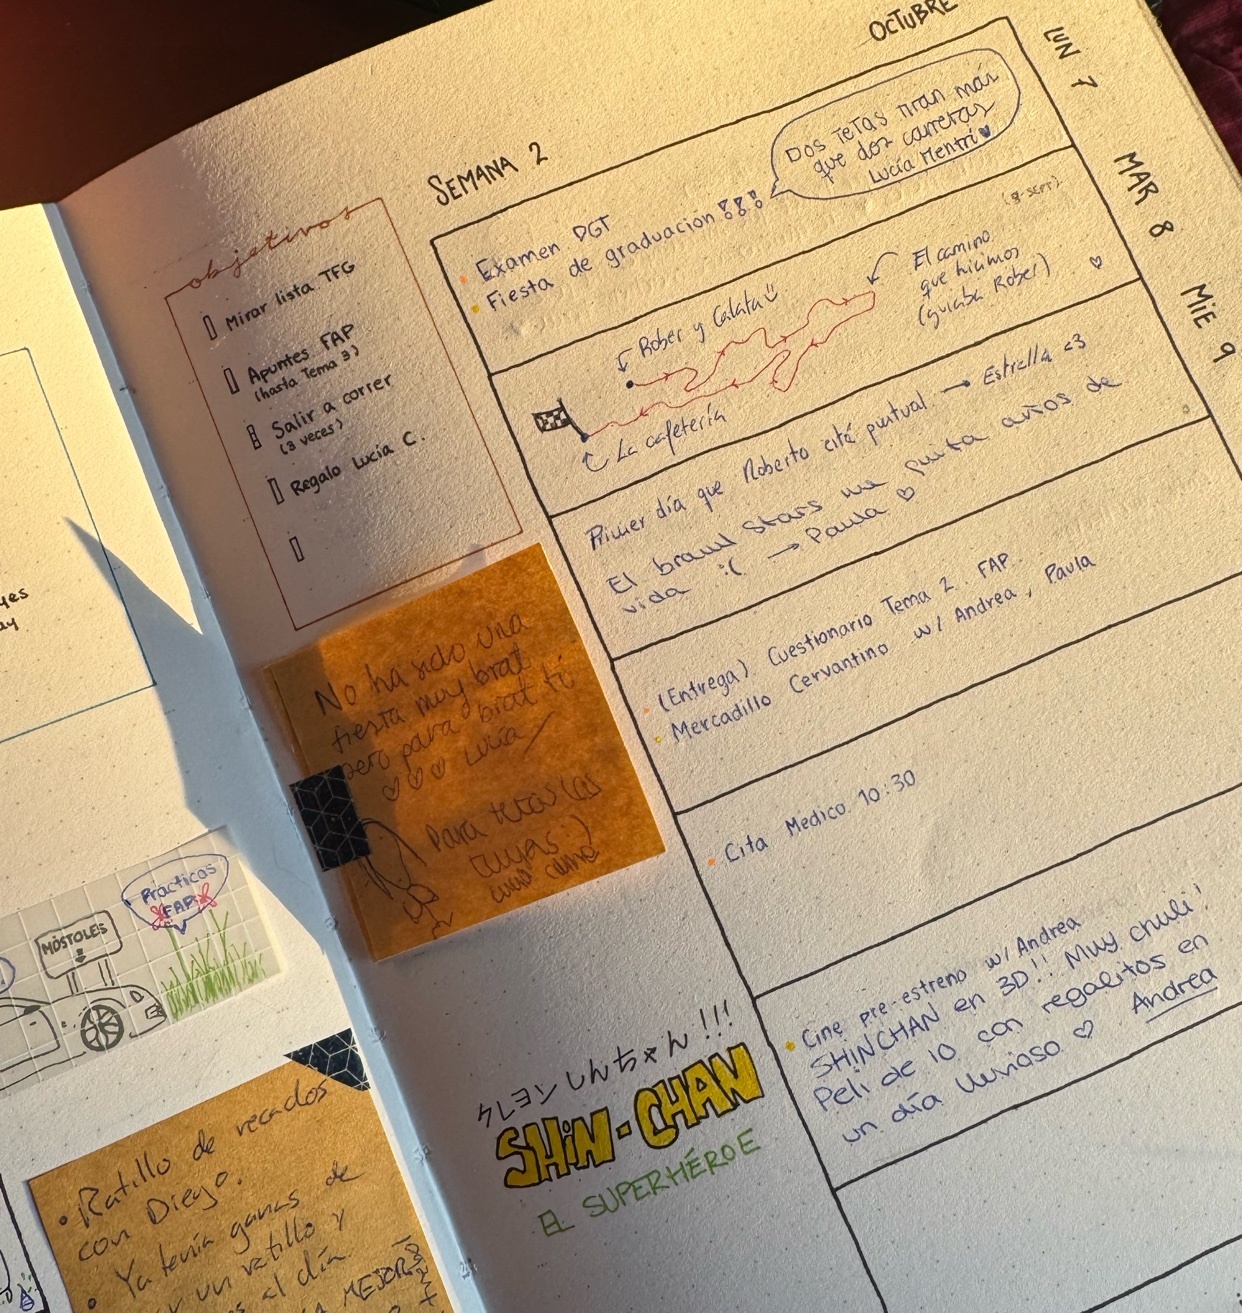 OCTUBRE
SEMANA 2
LUN 7
MAR 8
MIE 9
objetivos
Mirar lista TFG
Apuntes FAP
(hasta Tema 3)
Salir a correr
(3 veces)
Regalo Lucía C.
Examen DGT
Fiesta de graduación !!!
Dos tetas tiran más
que dos carretas
Lucía Mentri
Rober y Calata
El camino
que hicimos
(guiaba Rober)
La cafetería
Primer día que Roberto está puntual → Estrella <3
El brawl stars me quita años de
vida :( → Paula ♡
(Entrega) Cuestionario Tema 2. FAP.
Mercadillo Cervantino w/ Andrea, Paula
Cita Médico 10:30
Cine pre-estreno w/Andrea
SHINCHAN en 3D!! Muy chuli!
Peli de 10 con regalitos en
un día lluvioso ♡ Andrea
No ha sido una
fiesta muy brat
pero para brat tú
♡♡♡ Lucía
Para tetas las
tuyas :)
クレヨンしんちゃん!!!
SHiN-CHAN
EL SUPERHÉROE
Prácticas
FAP
MÓSTOLES
• Ratillo de recados
con Diego.
• Ya tenía ganas de
un ratillo y
al día
MEJOR